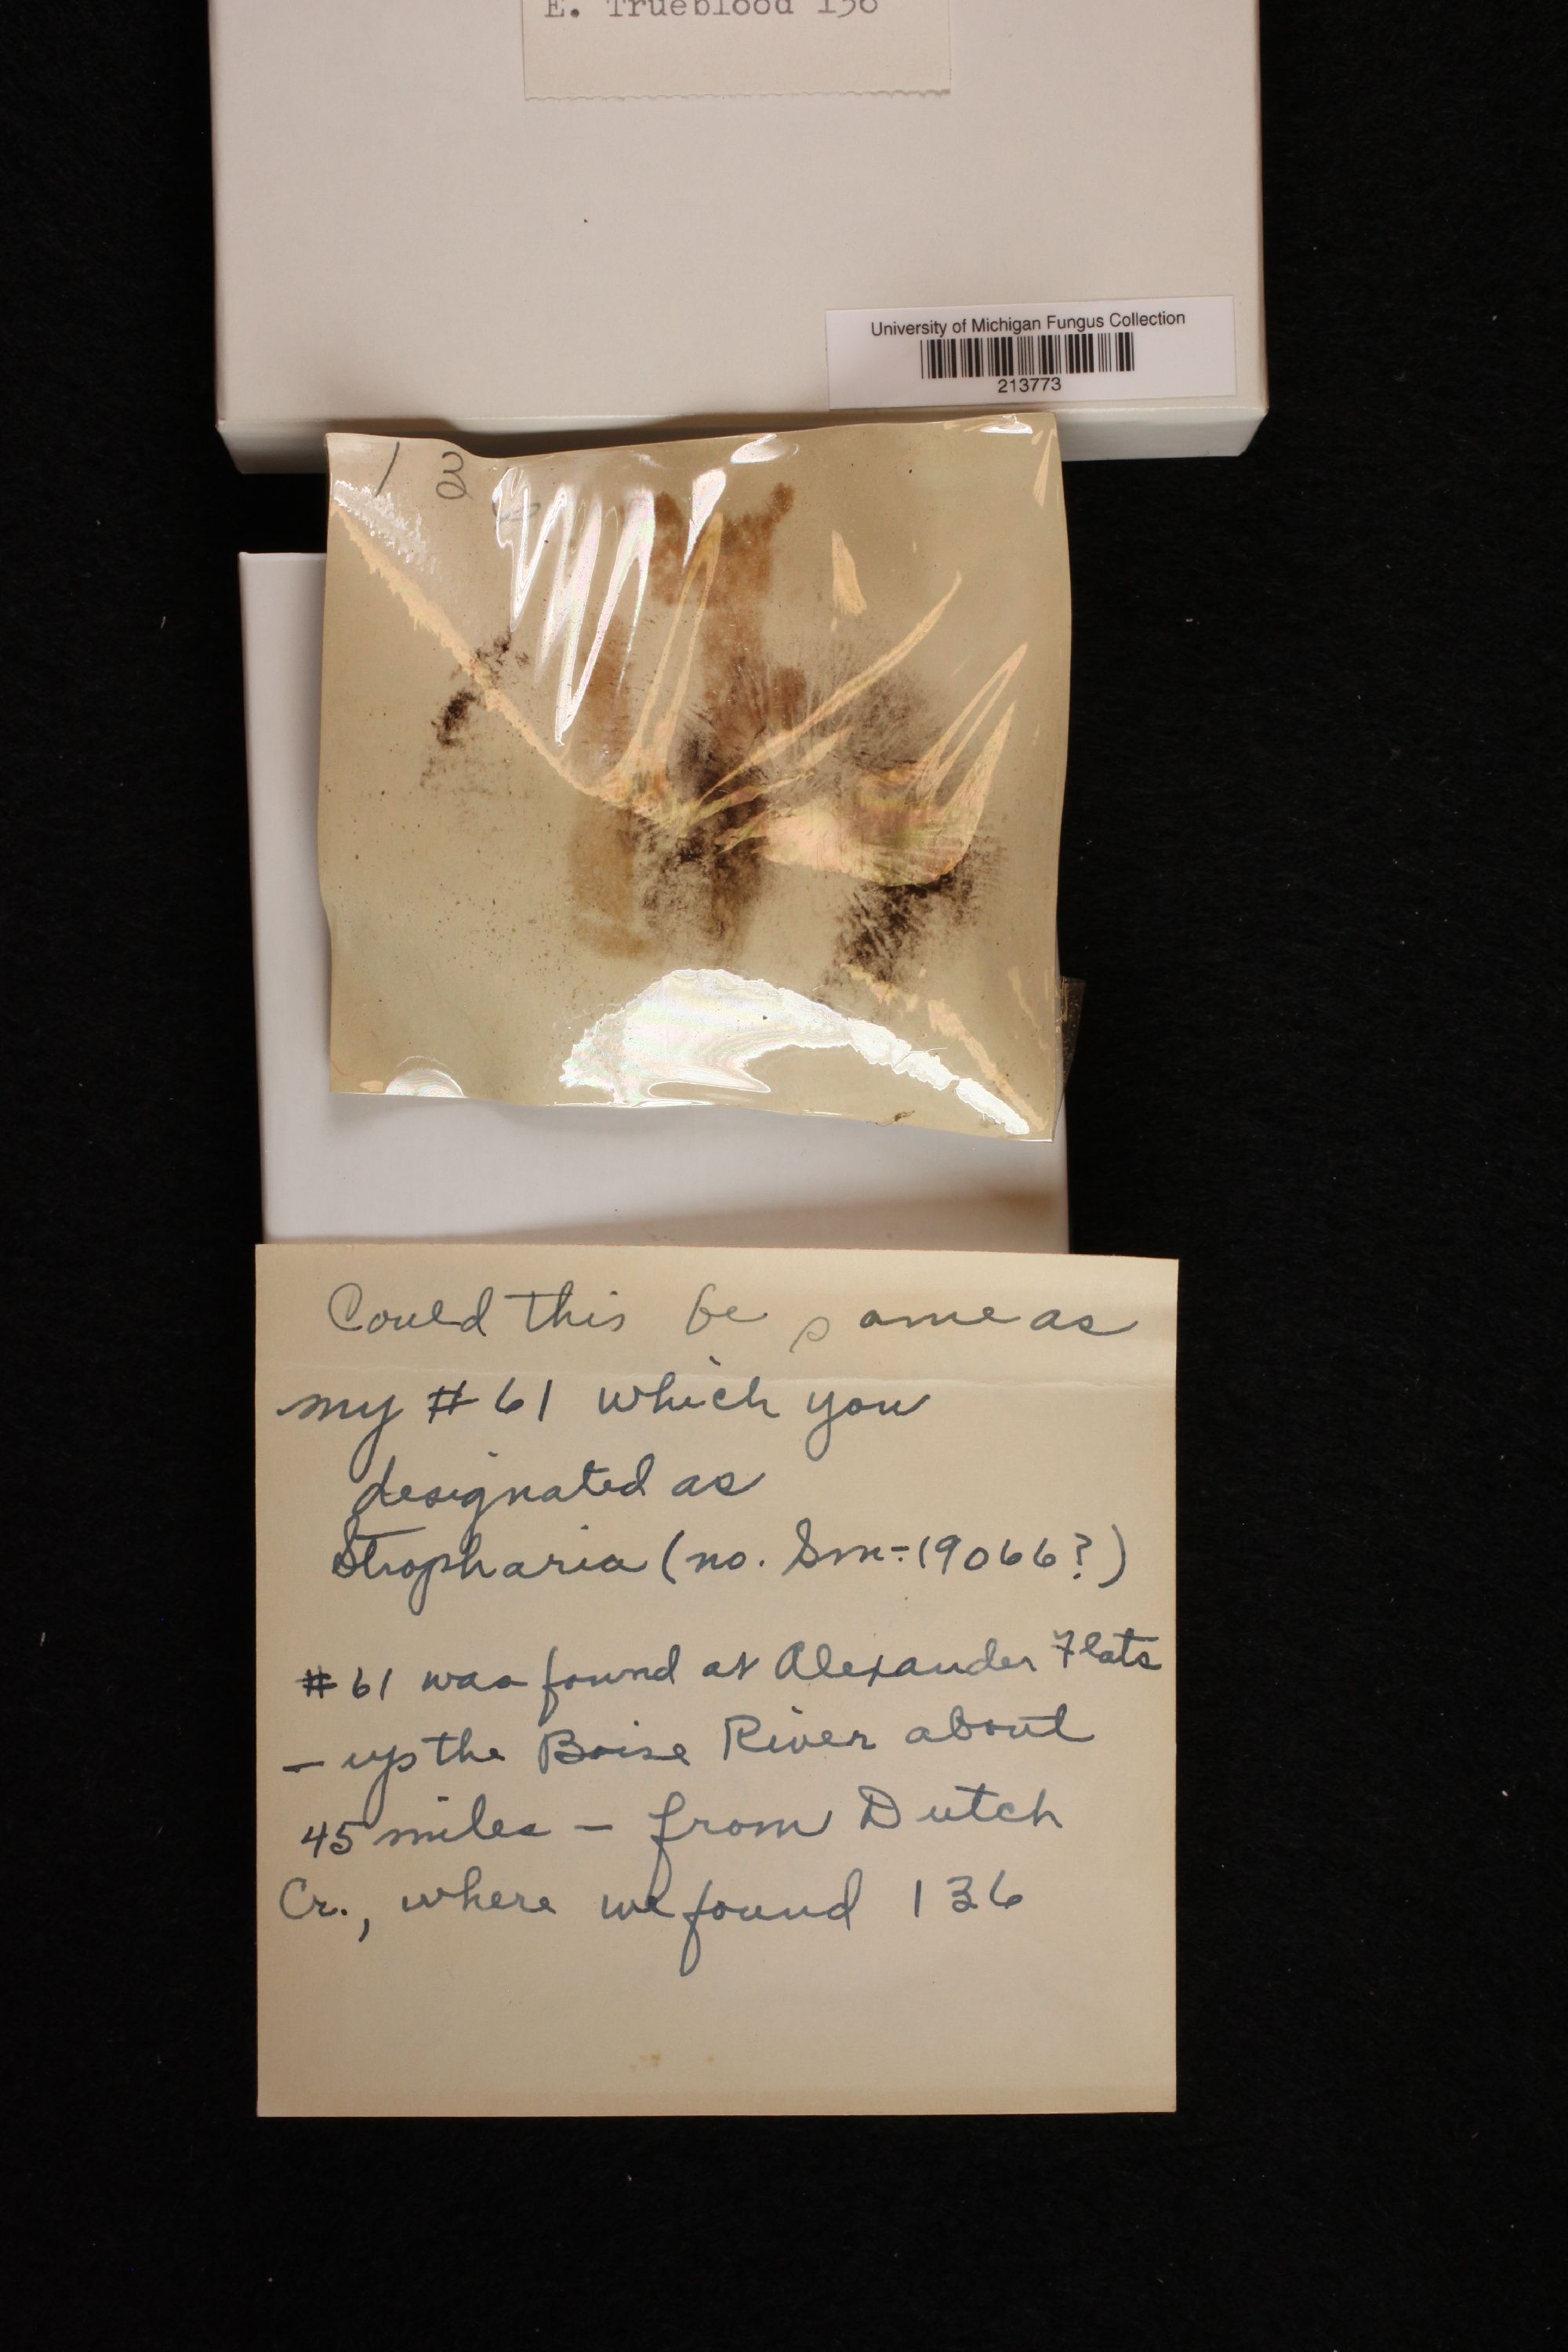 E. Trueblood 136
University of Michigan Fungus Collection
213773
1 3 6
Could this be same as
my #61 which you
designated as
Stropharia (no. Sm-19066?)
#61 was found at Alexander Flats
– up the Boise River about
45 miles – from Dutch
Cr., where we found 136